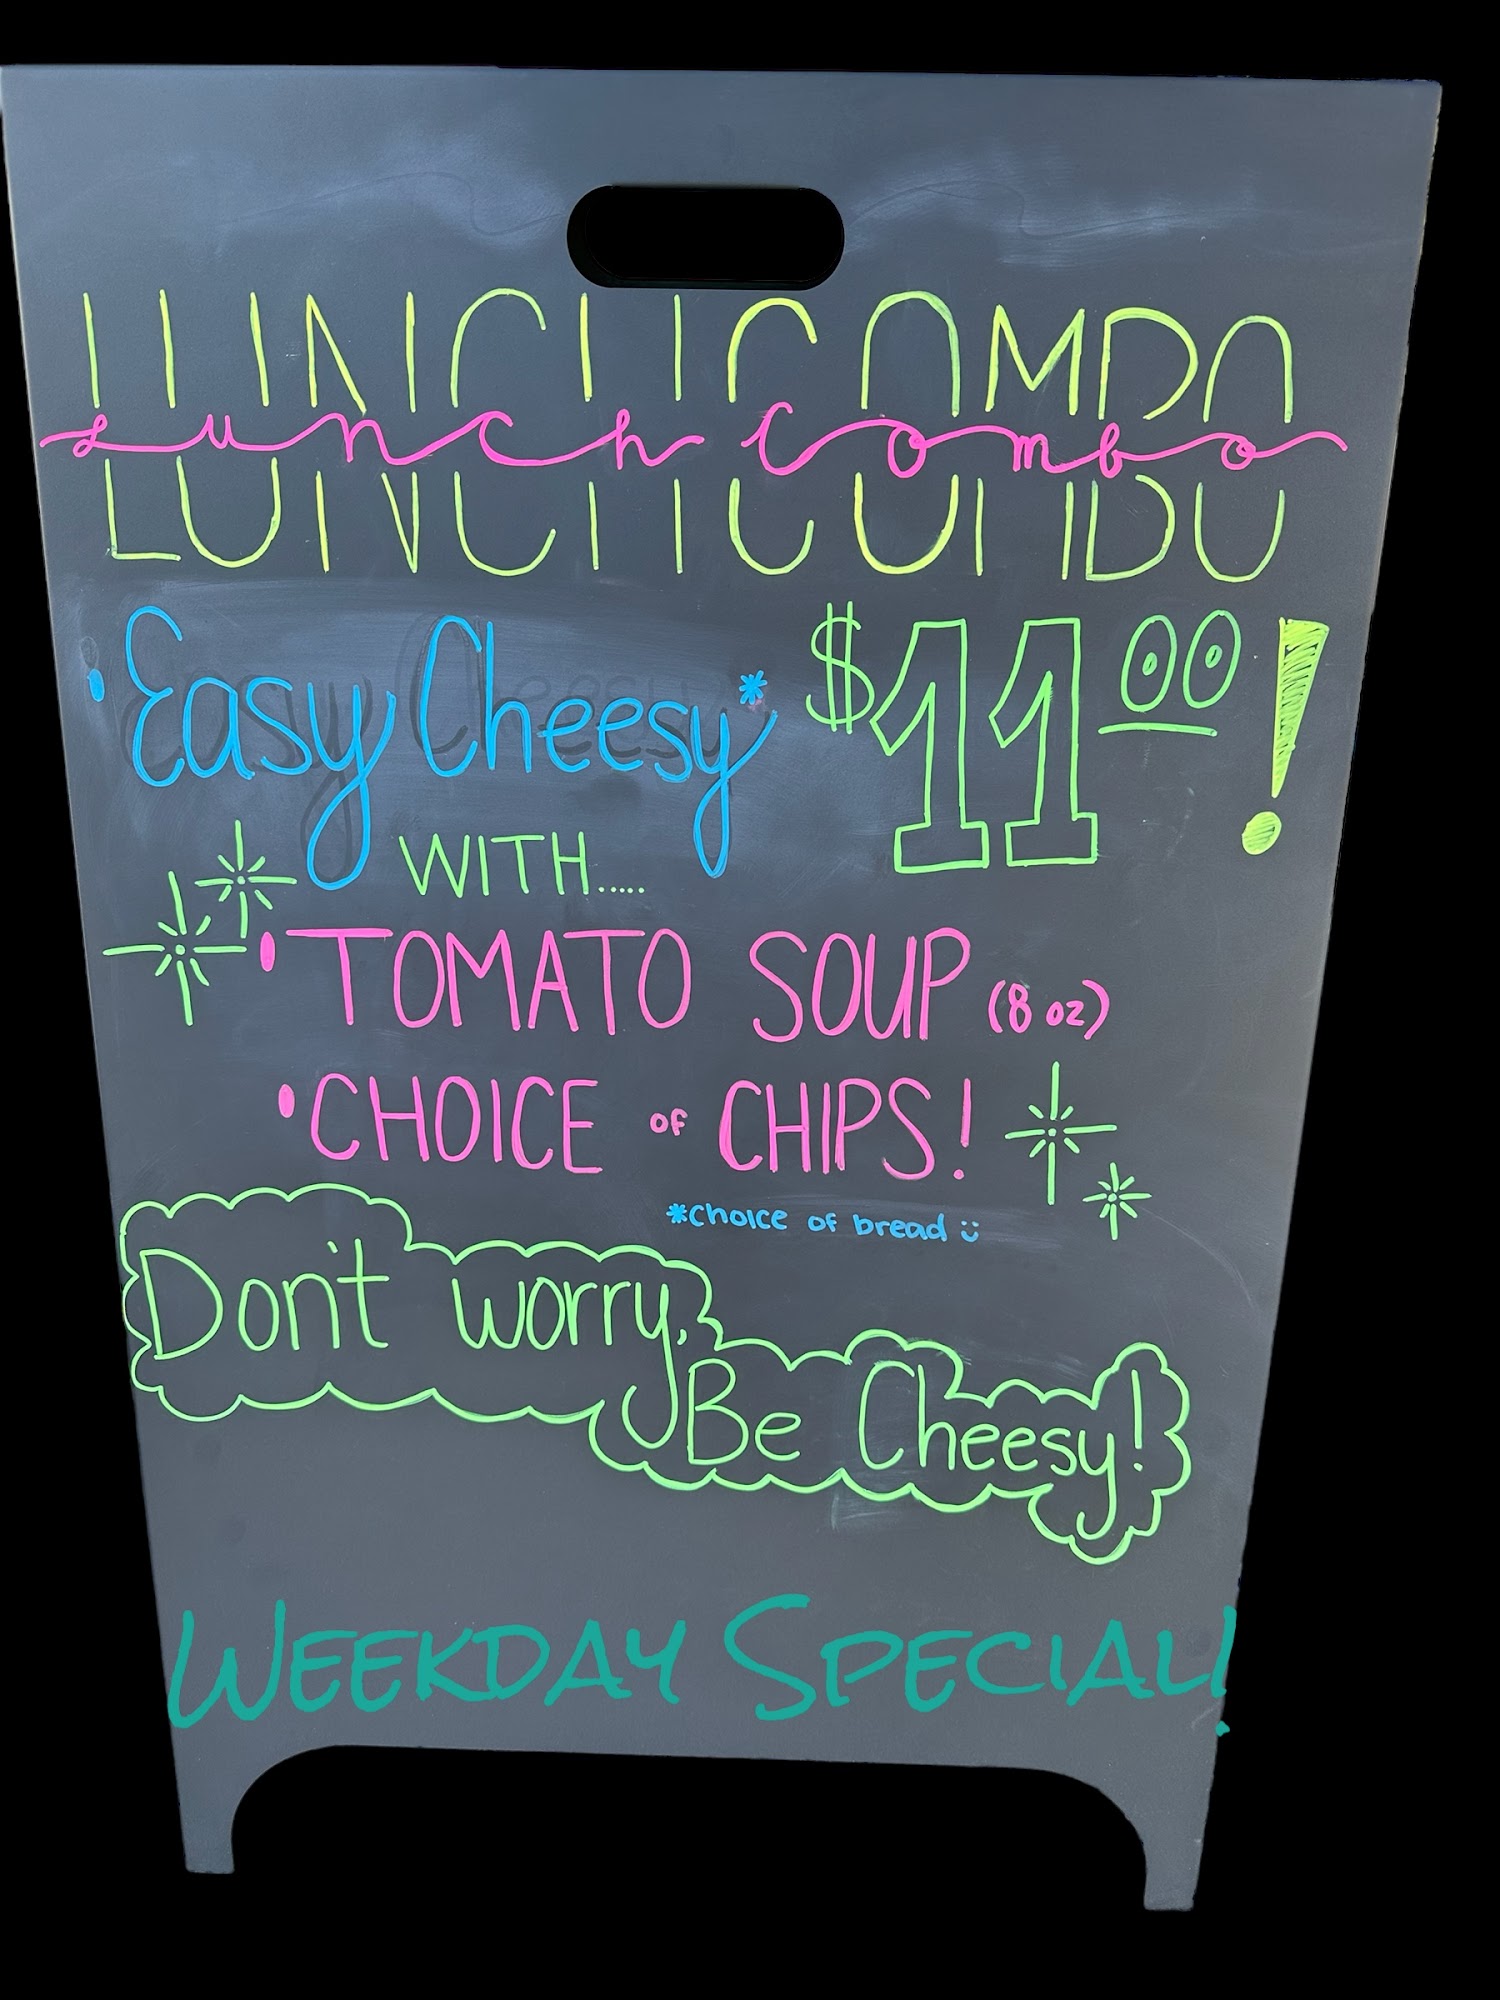 LUNCH COMBO
Lunch Combo
• Easy Cheesy* $11.00!
WITH.....
• TOMATO SOUP (8 oz)
• CHOICE OF CHIPS!
*choice of bread ü
Don't worry,
Be Cheesy!
WEEKDAY SPECIAL!